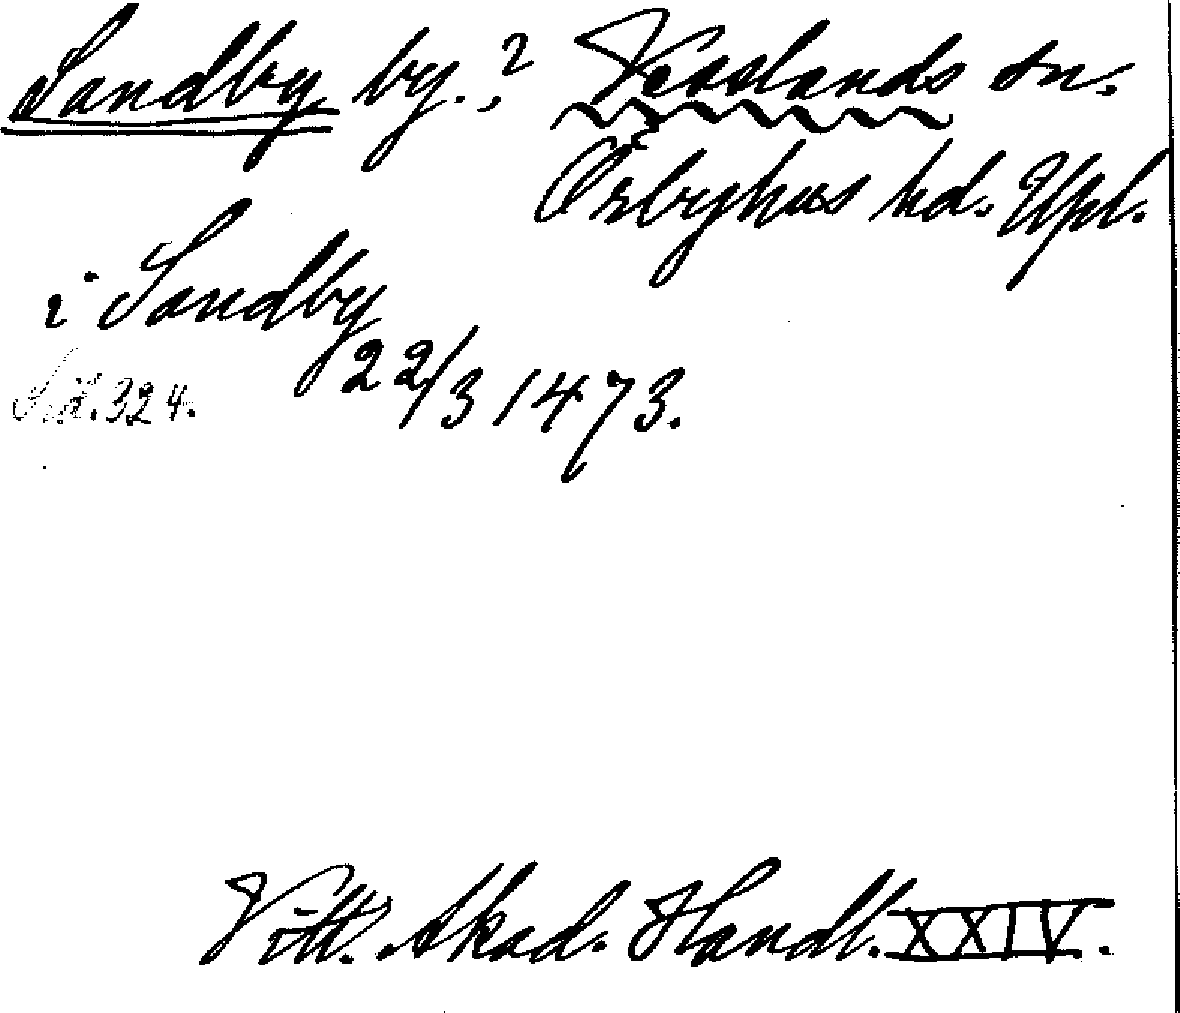 Sandby by.,? Veoslands sn.
Örbyhus hd. Upl.
i Sandby
22/3 1473.
Sid. 324.
Vitt. Akad. Handl. XXIV.